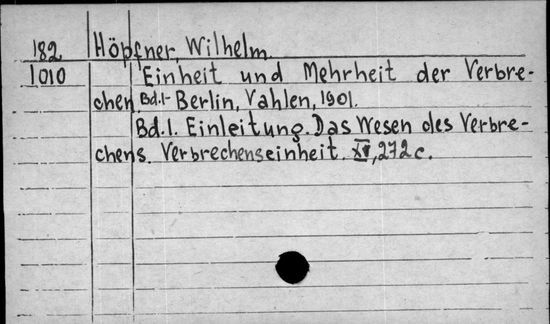 182 Höpfner, Wilhelm.
1010 Einheit und Mehrheit der Verbre-
chen Bd.1- Berlin, Vahlen, 1901.
Bd.1. Einleitung. Das Wesen des Verbre-
chens. Verbrechenseinheit. XV, 272 c.